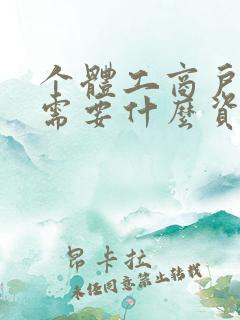 个體工商戶
需要什麼資
昂卡拉
未经同意禁止转载